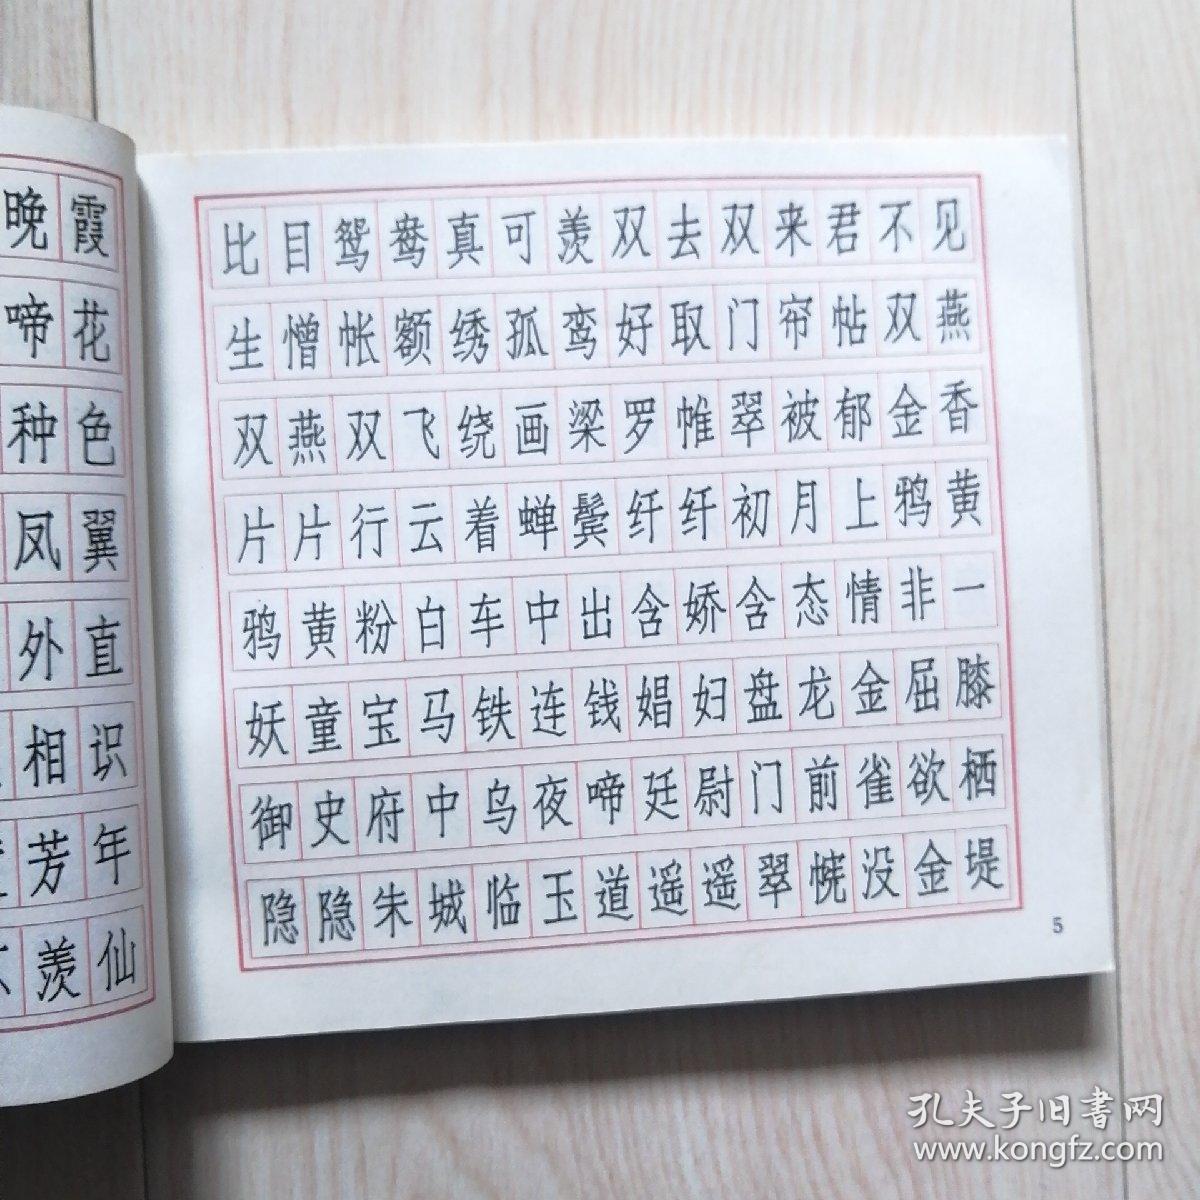 晚霞
啼花
种色
凤翼
外直
相识
芳年
羡仙
比目鸳鸯真可羡双去双来君不见
生憎帐额绣孤鸾好取门帘帖双燕
双燕双飞绕画梁罗帷翠被郁金香
片片行云着蝉鬓纤纤初月上鸦黄
鸦黄粉白车中出含娇含态情非一
妖童宝马铁连钱娼妇盘龙金屈膝
御史府中乌夜啼廷尉门前雀欲栖
隐隐朱城临玉道遥遥翠幰没金堤
5
孔夫子旧书网
www.kongfz.com